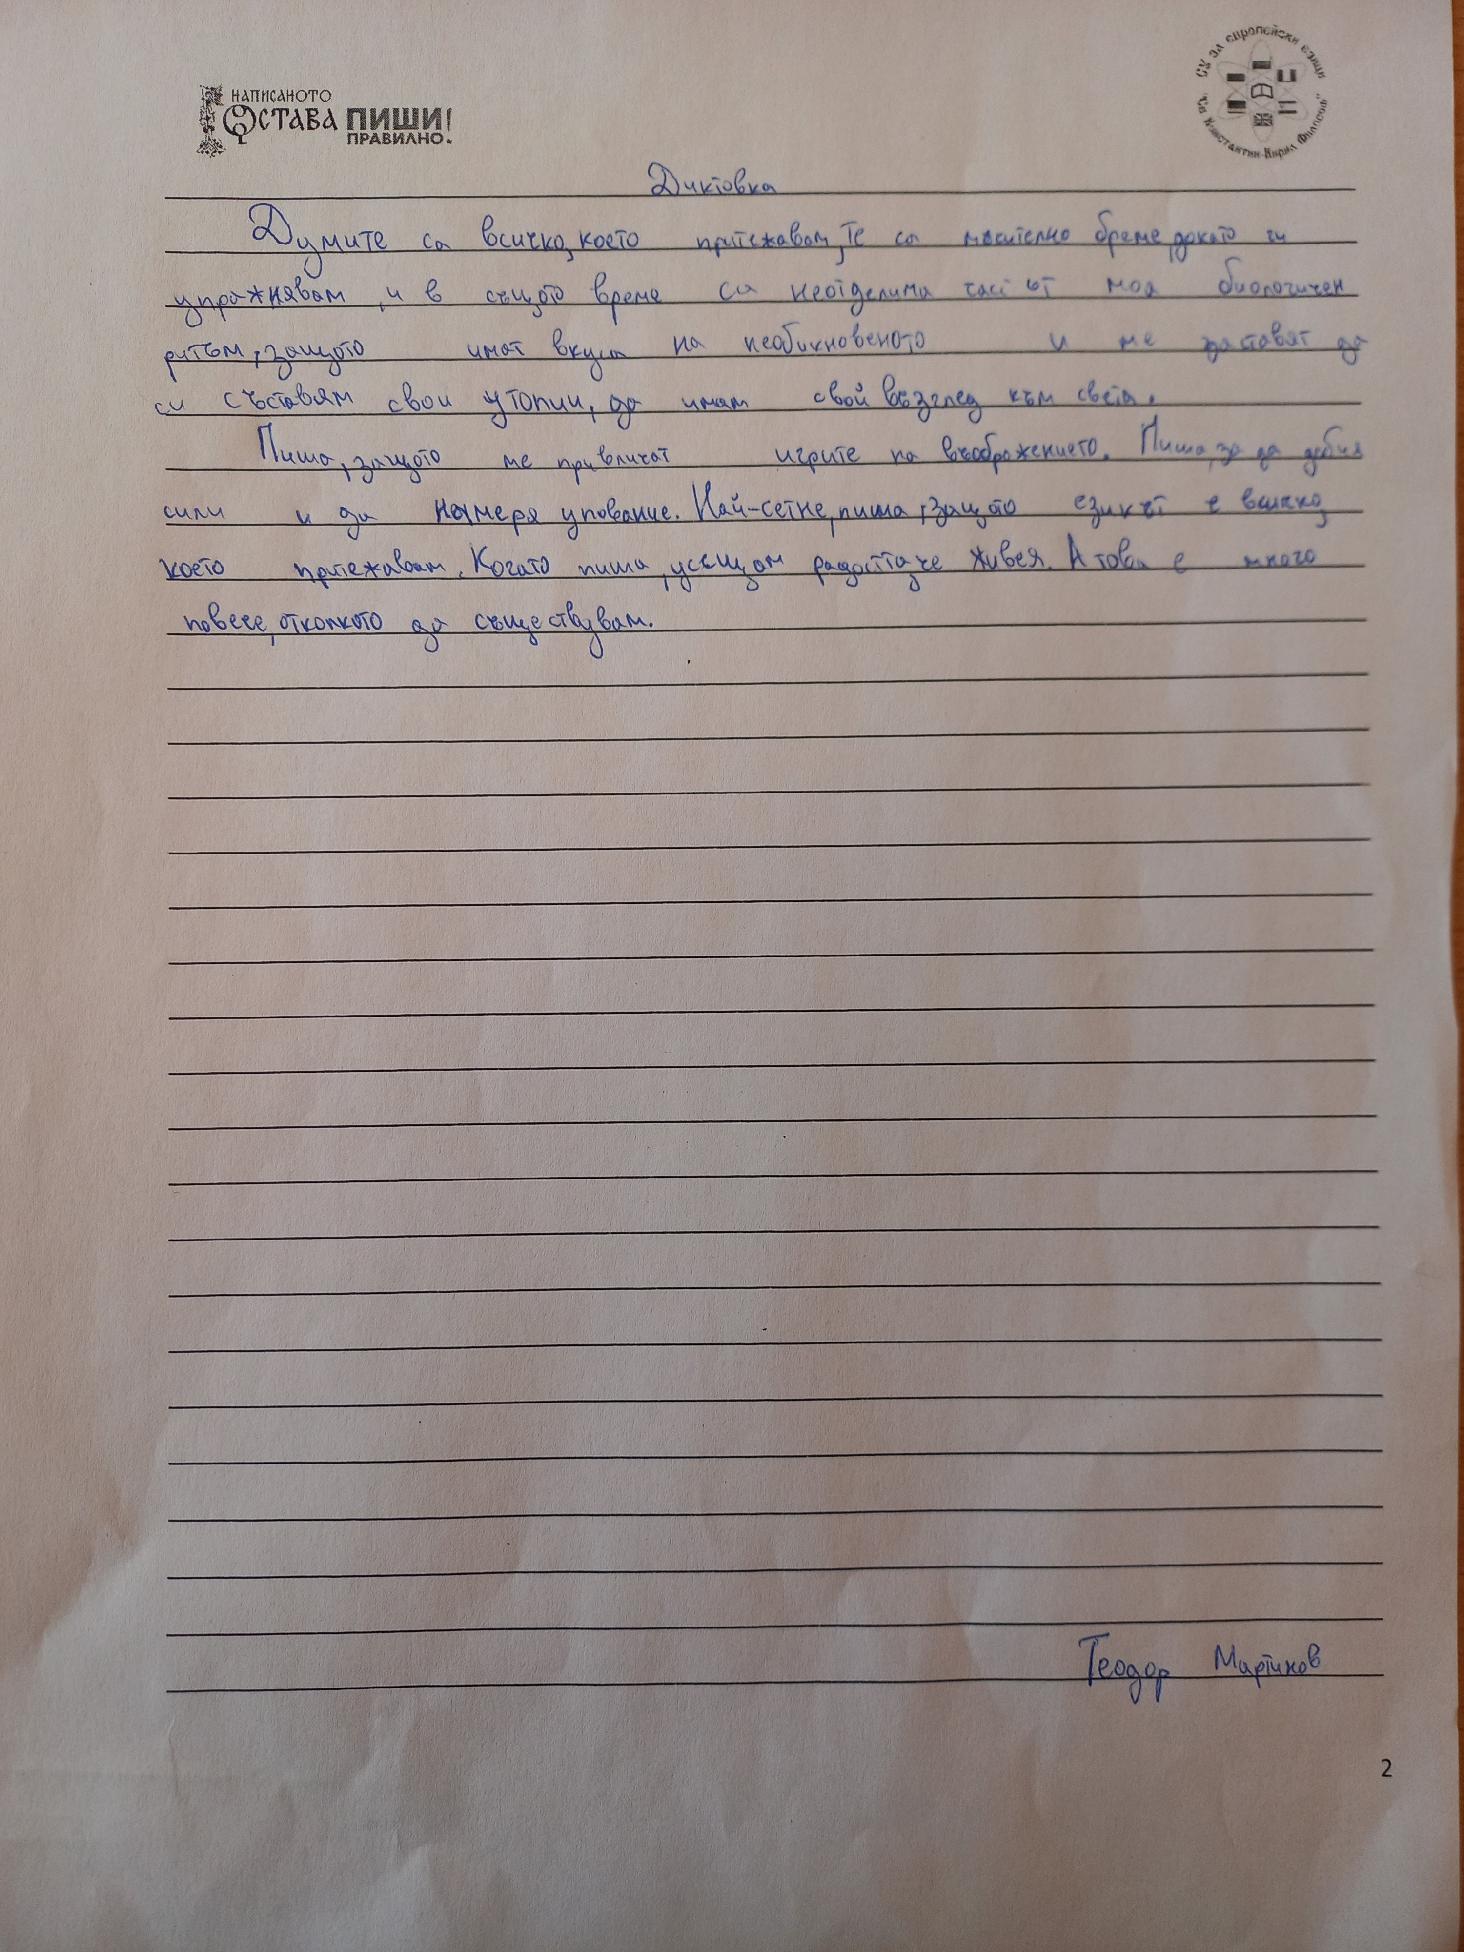 НАПИСАНОТО
ОСТАВА ПИШИ!
ПРАВИЛНО.
СУ за европейски езици
"Св. Константин-Кирил Философ"
Диктовка
Думите са всичко, което притежавам, Те са мъчително бреме, докато ги
упражнявам, и в същото време са неотделима част от моя биологичен
ритъм, защото имат вкуса на необикновеното и ме заставят да
си съставям свои утопии, да имам свой възглед към света.
Пиша, защото ме привличат игрите на въображението. Пиша, за да добия
сили и да намеря упование. Най-сетне, пиша, защото езикът е всичко,
което притежавам. Когато пиша, усещам радостта, че живея. А това е много
повече, отколкото да съществувам.
Теодор Мартинов
2